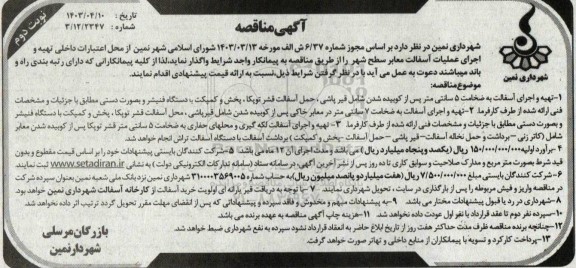 نوبت دوم
آگهی مناقصه
تاریخ : ۱۴۰۳/۰۴/۱۰
شماره : ۳/۱۲/۲۳۴۷
شهرداری نمین
شهرداری نمین در نظر دارد بر اساس مجوز شماره ۶/۳۷ ش الف مورخه ۱۴۰۳/۰۳/۱۳ شورای اسلامی شهر نمین از محل اعتبارات داخلی تهیه و
اجرای عملیات آسفالت معابر سطح شهر را از طریق مناقصه به پیمانکار واجد شرایط واگذار نماید، لذا از کلیه پیمانکارانی که دارای رتبه بندی راه و
باند میباشند دعوت به عمل می آید با در نظر گرفتن شرایط ذیل، نسبت به ارائه قیمت پیشنهادی اقدام نمایند.
موضوع مناقصه:
۱- تهیه و اجرای آسفالت به ضخامت ۵ سانتی متر پس از کوبیده شدن شامل قیر پاشی، حمل آسفالت قشر توپکا، پخش و کمپکت با دستگاه فنیشر و بصورت دستی مطابق با جزئیات و مشخصات
فنی ارائه شده از طرف کارفرما. ۲- تهیه و اجرای آسفالت به ضخامت ۷ سانتی متر در معابر خاکی پس از کوبیده شدن شامل قیرپاشی، حمل آسفالت قشر توپکا، پخش و کمپکت با دستگاه فنیشر
و بصورت دستی مطابق با جزئیات و مشخصات فنی ارائه شده از طرف کارفرما. ۳- تهیه و اجرای آسفالت لکه گیری و محلهای حفاری به ضخامت ۵ سانتی متر قشر توپکا پس از کوبیده شدن معابر
شامل (کاتر زنی – برداشت و حمل نخاله آسفالت – قیر پاشی – حمل آسفالت – پخش و کمپکت) برداشت آسفالت با دستگاه آسفالت تراش انجام خواهد شد.
۴- برآورد اولیه ۱۵۰/۰۰۰/۰۰۰/۰۰۰ ریال (یکصد و پنجاه میلیارد ریال) می باشد و مدت اجرای آن ۱۲ ماه می باشد. ۵- شرکت کنندگان بایستی پیشنهادات خود را بر اساس قیمت مقطوع و بدون
قید شرط بصورت متر مربع و مدارک صلاحیت و سوابق کاری تا ده روز پس از نشر آخرین آگهی، در سامانه ستاد (سامانه تدارکات الکترونیکی دولت) به نشانی www.setadiran.ir ثبت نمایند.
۶- شرکت کنندگان بایستی مبلغ ۷/۵۰۰/۰۰۰/۰۰۰ ریال (هفت میلیارد و پانصد میلیون ریال) به حساب شماره ۳۱۰۰۰۰۳۵۶۹۰۰۵ شهرداری نمین نزد بانک ملی شعبه نمین بعنوان سپرده شرکت
در مناقصه واریز و فیش مربوطه را پس از بارگذاری در سایت، تحویل شهرداری نمایند. ۷- با توجه به دریافت قیر یارانه ای اولویت خرید آسفالت از کارخانه آسفالت شهرداری نمین خواهد بود.
۸- شهرداری در رد یا قبول پیشنهادات مختار می باشد. ۹- به پیشنهادات مبهم و مخدوش و فاقد سپرده و پیشنهاداتی که پس از انقضای مهلت مقرر تحویل گردد ترتیب اثر داده نخواهد شد.
۱۰- سپرده نفر دوم تا عقد قرارداد با نفر اول عودت داده نخواهد شد. ۱۱- هزینه چاپ آگهی مناقصه به عهده برنده می باشد.
۱۲- چنانچه برنده مناقصه ظرف مدت حداکثر هفت روز از تاریخ ابلاغ حاضر به انعقاد قرارداد نشود سپرده به نفع شهرداری ضبط خواهد شد.
۱۳- پرداخت کارکرد و تسویه با پیمانکاران از منابع داخلی و تهاتر صورت خواهد گرفت.
بازرگان مرسلی
شهردار نمین